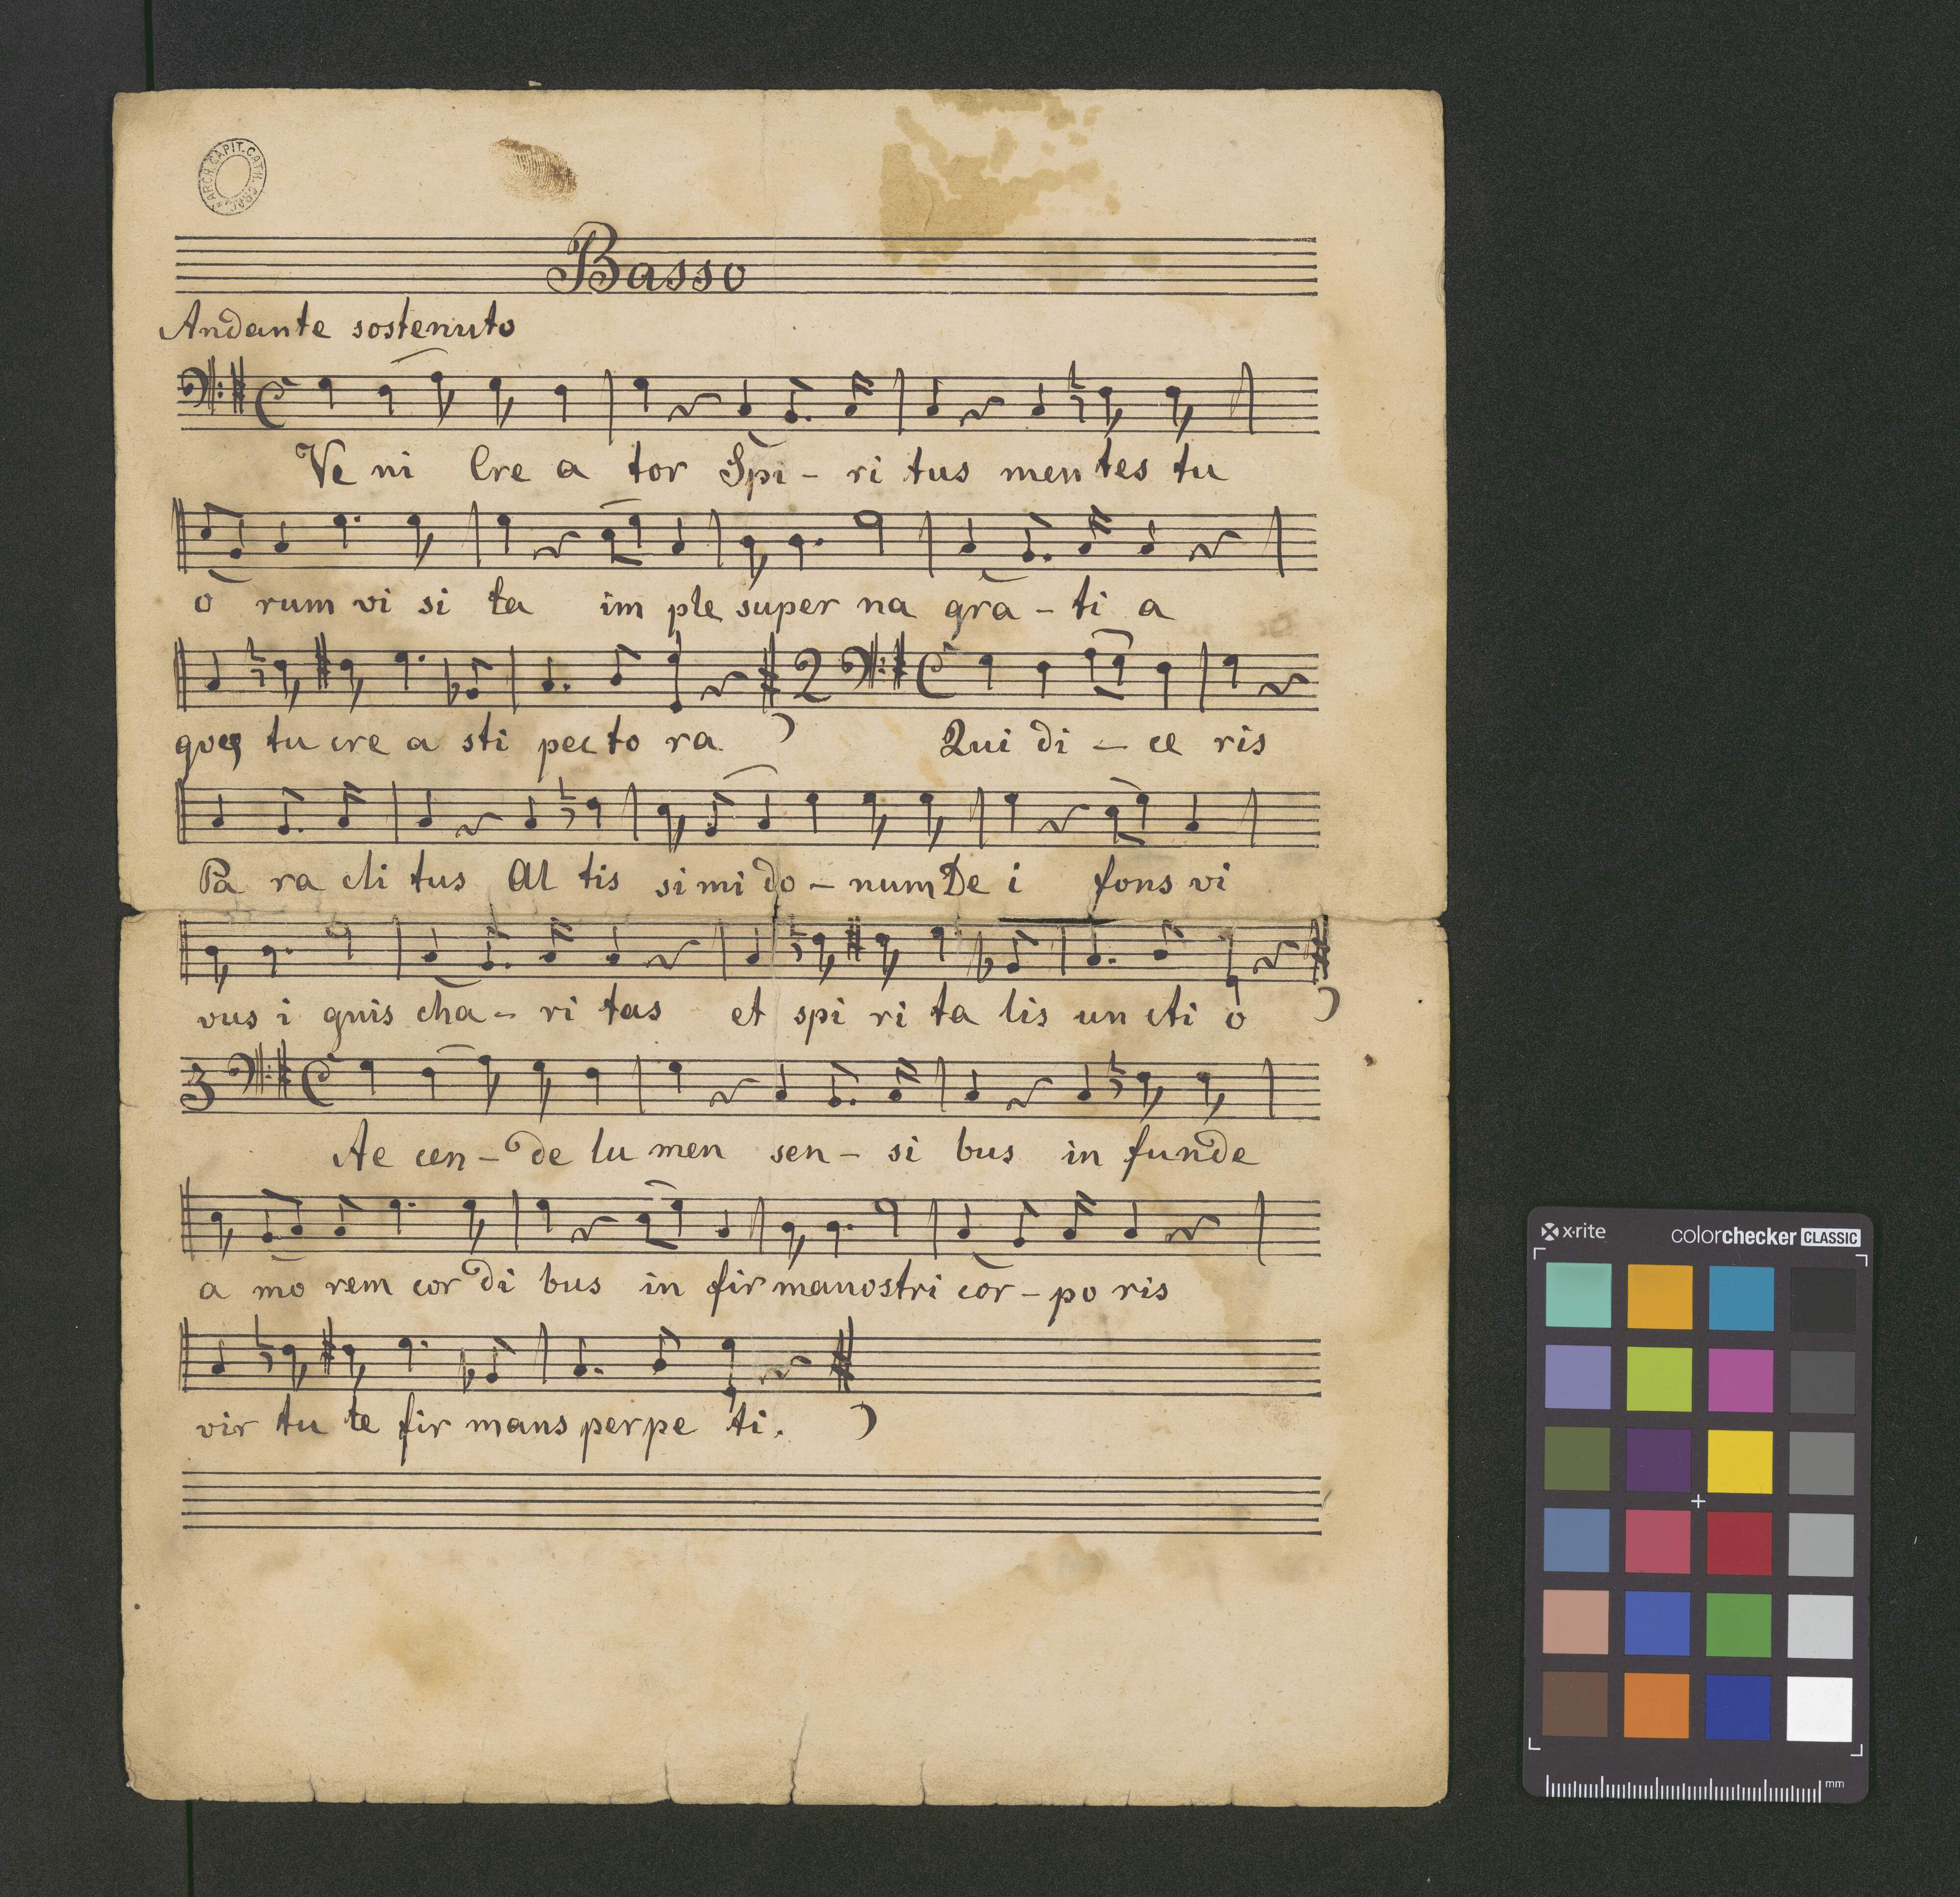 ARCH. CAPIT. CATH. CRAC.
Basso
Andante sostenuto
Ve ni Cre a tor Spi - ri tus men tes tu
o rum vi si ta im ple super na gra - ti a
tu cre a sti pec to ra 2 Qui di - ce ris
Pa ra cli tus Al tis si mi do - num De i fons vi
vus i gnis cha - ri tas et spi ri ta lis un cti o
3
Ac cen - de lu men sen - si bus in funde
a mo rem cor di bus in fir ma nostri cor - po ris
vir tu te fir mans per pe ti.
x·rite colorchecker CLASSIC
mm